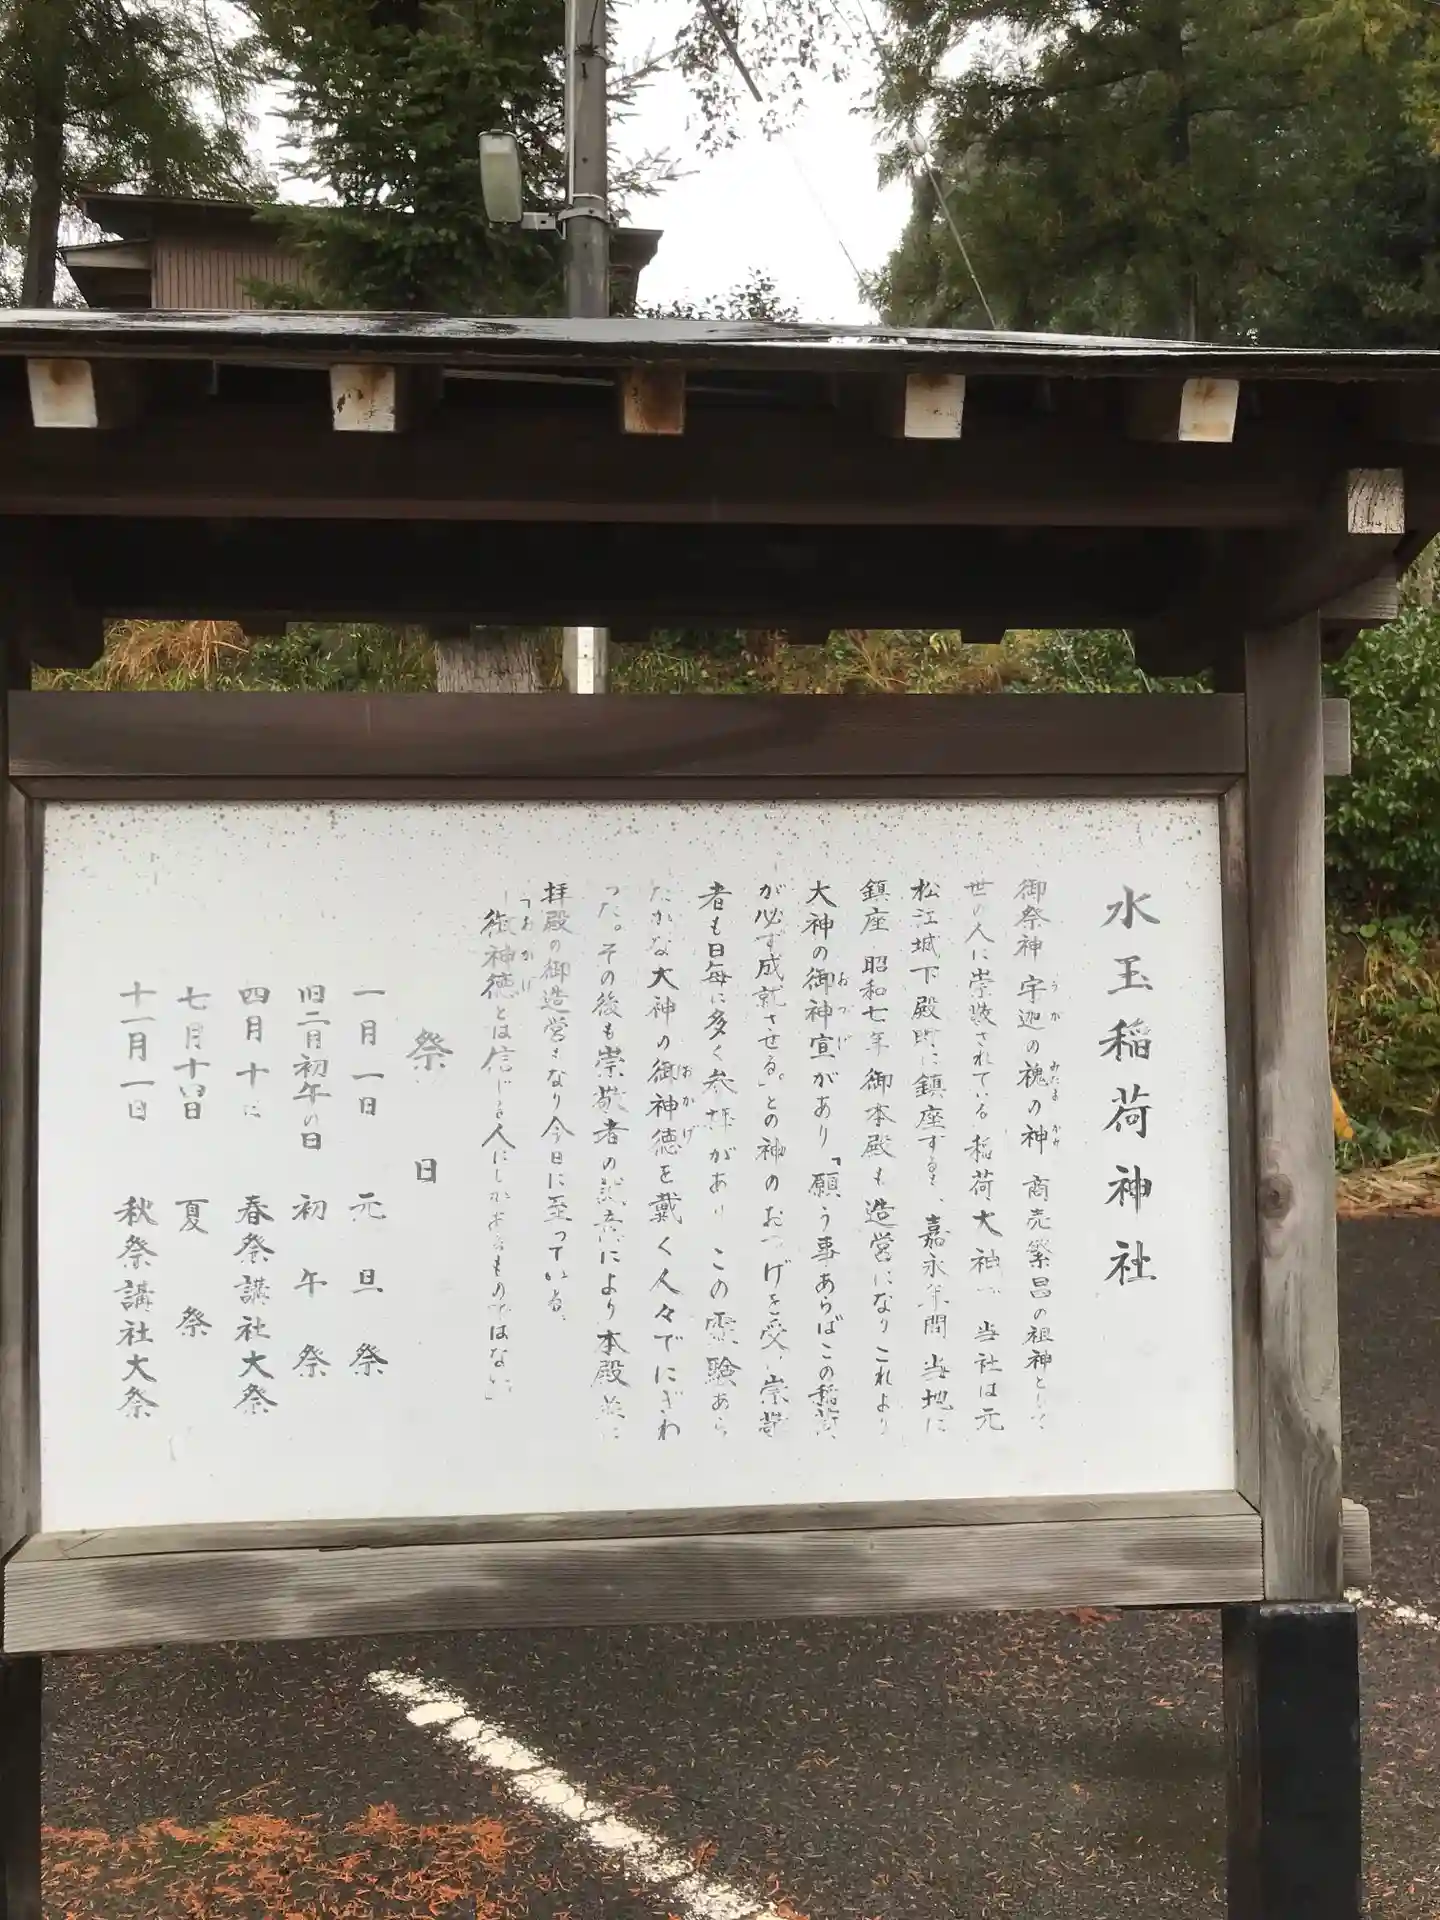 水玉稲荷神社
御祭神 宇迦の魂の神 商売繁昌の祖神として
世の人に崇敬されている稲荷大神で 当社は元
松江城下殿町に鎮座するも、嘉永年間 当地に
鎮座 昭和七年御本殿も造営になりこれより
大神の御神宣があり「願う事あらばこの稲荷、
が必ず成就させる。」との神のおつげを受い崇敬
者も日毎に多く参拝があり この霊験あら
たかな大神の御神徳を戴く人々でにぎわ
った。その後も崇敬者の誠意により本殿並に
拝殿の御造営となり今日に至っている。
「御神徳とは信じる人にしかあるものではない。」
祭日
一月一日 元旦祭
旧二月初午の日 初午祭
四月十に 春祭講社大祭
七月十四日 夏祭
十一月一日 秋祭講社大祭